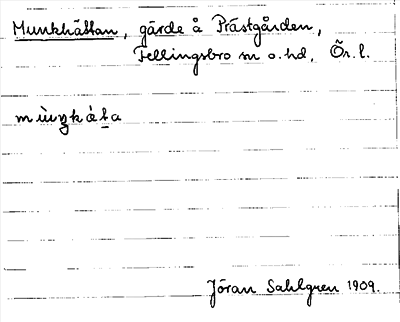 Munkhättan, gärde å Prästgården,
Fellingsbro sn o. hd, Ör. l.
Jöran Sahlgren 1909.